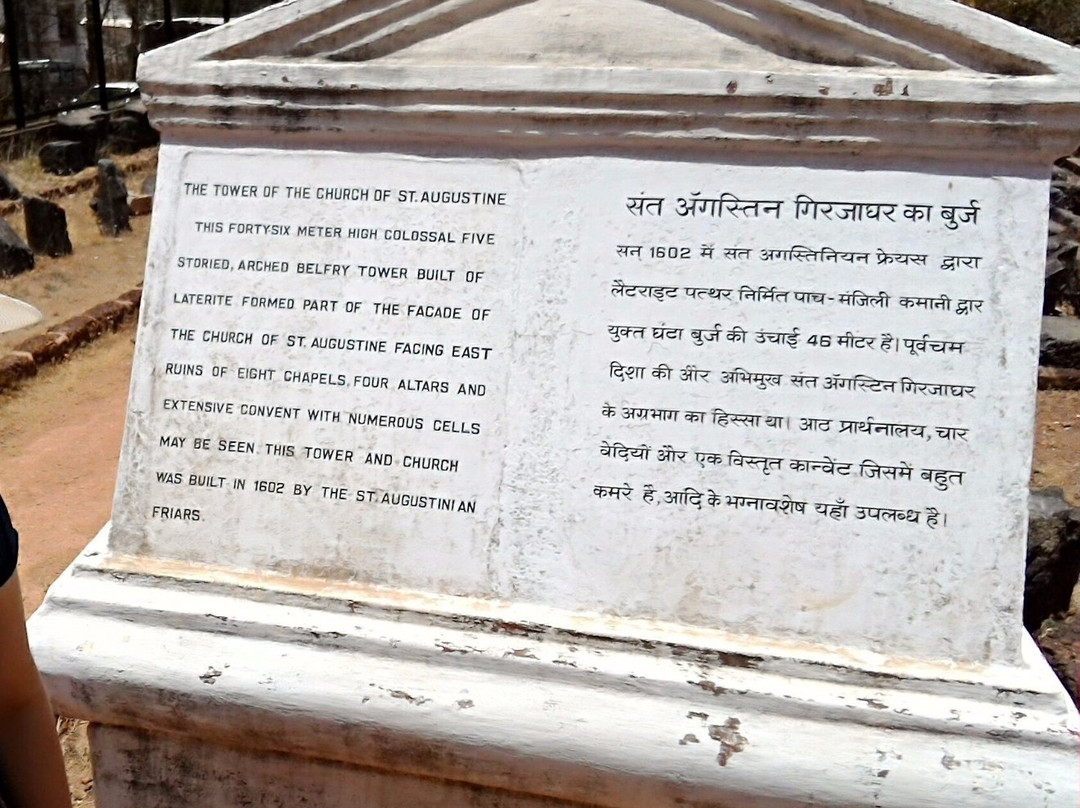 THE TOWER OF THE CHURCH OF ST. AUGUSTINE
THIS FORTYSIX METER HIGH COLOSSAL FIVE
STORIED, ARCHED BELFRY TOWER BUILT OF
LATERITE FORMED PART OF THE FACADE OF
THE CHURCH OF ST. AUGUSTINE FACING EAST
RUINS OF EIGHT CHAPELS, FOUR ALTARS AND
EXTENSIVE CONVENT WITH NUMEROUS CELLS
MAY BE SEEN. THIS TOWER AND CHURCH
WAS BUILT IN 1602 BY THE ST. AUGUSTINIAN
FRIARS.
संत ॲगस्तिन गिरजाघर का बुर्ज
सन् 1602 में संत अगस्तिनियन फ्रेयस द्वारा
लैटराइट पत्थर निर्मित पाच-मंजिली कमानी द्वार
युक्त घंटा बुर्ज की उंचाई 46 मीटर है। पूर्वचम
दिशा की और अभिमुख संत ॲगस्टिन गिरजाघर
के अग्रभाग का हिस्सा था। आठ प्रार्थनालय, चार
वेदियों और एक विस्तृत कान्वेंट जिसमें बहुत
कमरे है, आदि के भग्नावशेष यहाँ उपलब्ध है।